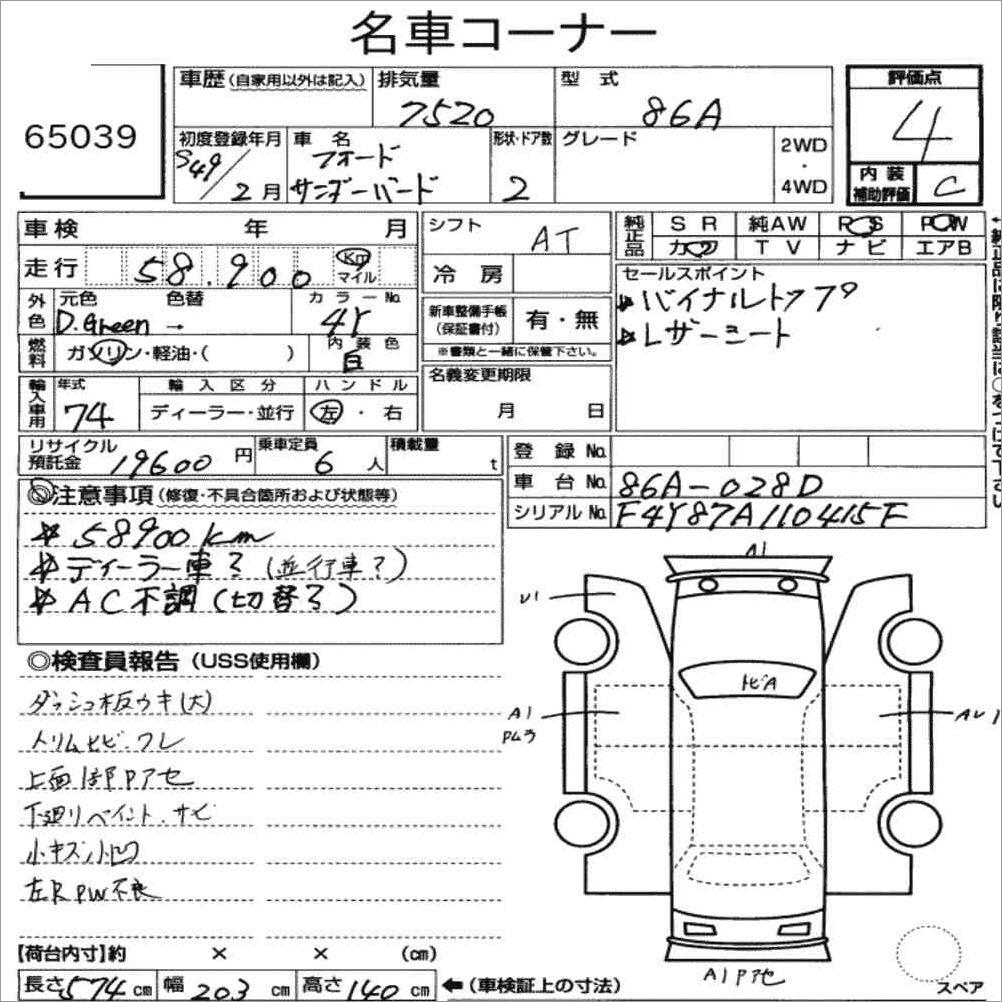 名車コーナー
65039
車歴(自家用以外は記入)
排気量
7520
型式
86A
評価点
4
初度登録年月
S49/2月
車名
フォード
サンダーバード
形状・ドア数
2
グレード
2WD
・
4WD
内装
補助評価
C
車検 年 月
シフト
AT
純正品
SR 純AW PS PW
カセ TV ナビ エアB
走行
58,900
Km
マイル
冷房
セールスポイント
★バイナルトップ
★レザーシート
外色
元色 色替
D.Green →
カラーNo.
4Y
新車整備手帳
(保証書付)
有・無
※書類と一緒に保管下さい。
燃料
ガソリン・軽油・( )
内装色
白
名義変更期限
月 日
輸入車用
年式
74
輸入区分
ディーラー・並行
ハンドル
左・右
リサイクル
預託金
19600円
乗車定員
6人
積載量
t
登録No.
車台No.
86A-028D
シリアルNo.
F4Y87A110415F
◎注意事項(修復・不具合箇所および状態等)
★58900km
★ディーラー車?(並行車?)
★AC不調(切替る)
◎検査員報告(USS使用欄)
ダッシュ板ウキ(大)
トリムヒビ・ワレ
上面1部Pアセ
下廻りペイント.サビ
小キズ小凹
左R PW不良
A1
U1
トビA
A1
AU1
A1Pアセ
スペア
【荷台内寸】約 × × (cm)
長さ574cm 幅203cm 高さ140cm
←(車検証上の寸法)